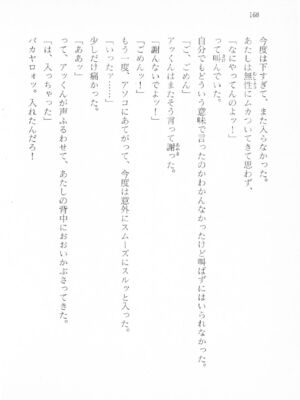 168
今度は下すぎて、また入らなかった。
あたしは無性にムカついてきて思わず、
「なにやってんのよッ！」
って叫んでいた。
自分でもどういう意味で言ったのかわかんなかったけど叫ばずにはいられなかった。
「ご、ごめん」
アッくんはまたそう言って謝った。
「謝んないでよッ！」
「ごめんッ！」
もう一度、アソコにあてがって、今度は意外にスムーズにスルッと入った。
「いったァ……」
少しだけ痛かった。
「ああッ」
って、アッくんが声ふるわせて、あたしの背中におおいかぶさってきた。
「は、入っちゃった」
バカヤロォッ。入れたんだろ！